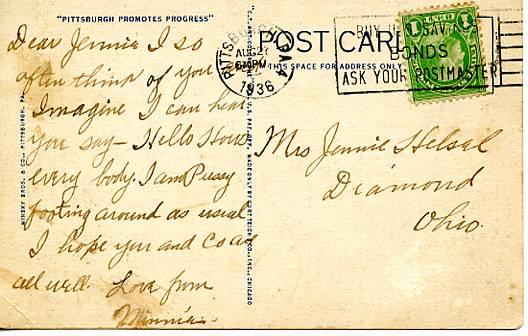 "PITTSBURGH PROMOTES PROGRESS"
Dear Jennie I so
often think of you
Imagine I can hear
you say - Hello How's
every body. I am Pussy
footing around as usual
I hope you and Co are
all well. Love from
Minnie.
MINSKY BROS. & CO., PITTSBURGH, PA.
PITTSBURGH, PA.
AUG 27
630 PM
1936
POST CARD
THIS SPACE FOR ADDRESS ONLY
BUY U.S. SAVINGS
BONDS
ASK YOUR POSTMASTER
1 1
Mrs Jennie Helsel
Diamond
Ohio.
MADE ONLY BY CURT TEICH & CO., INC., CHICAGO